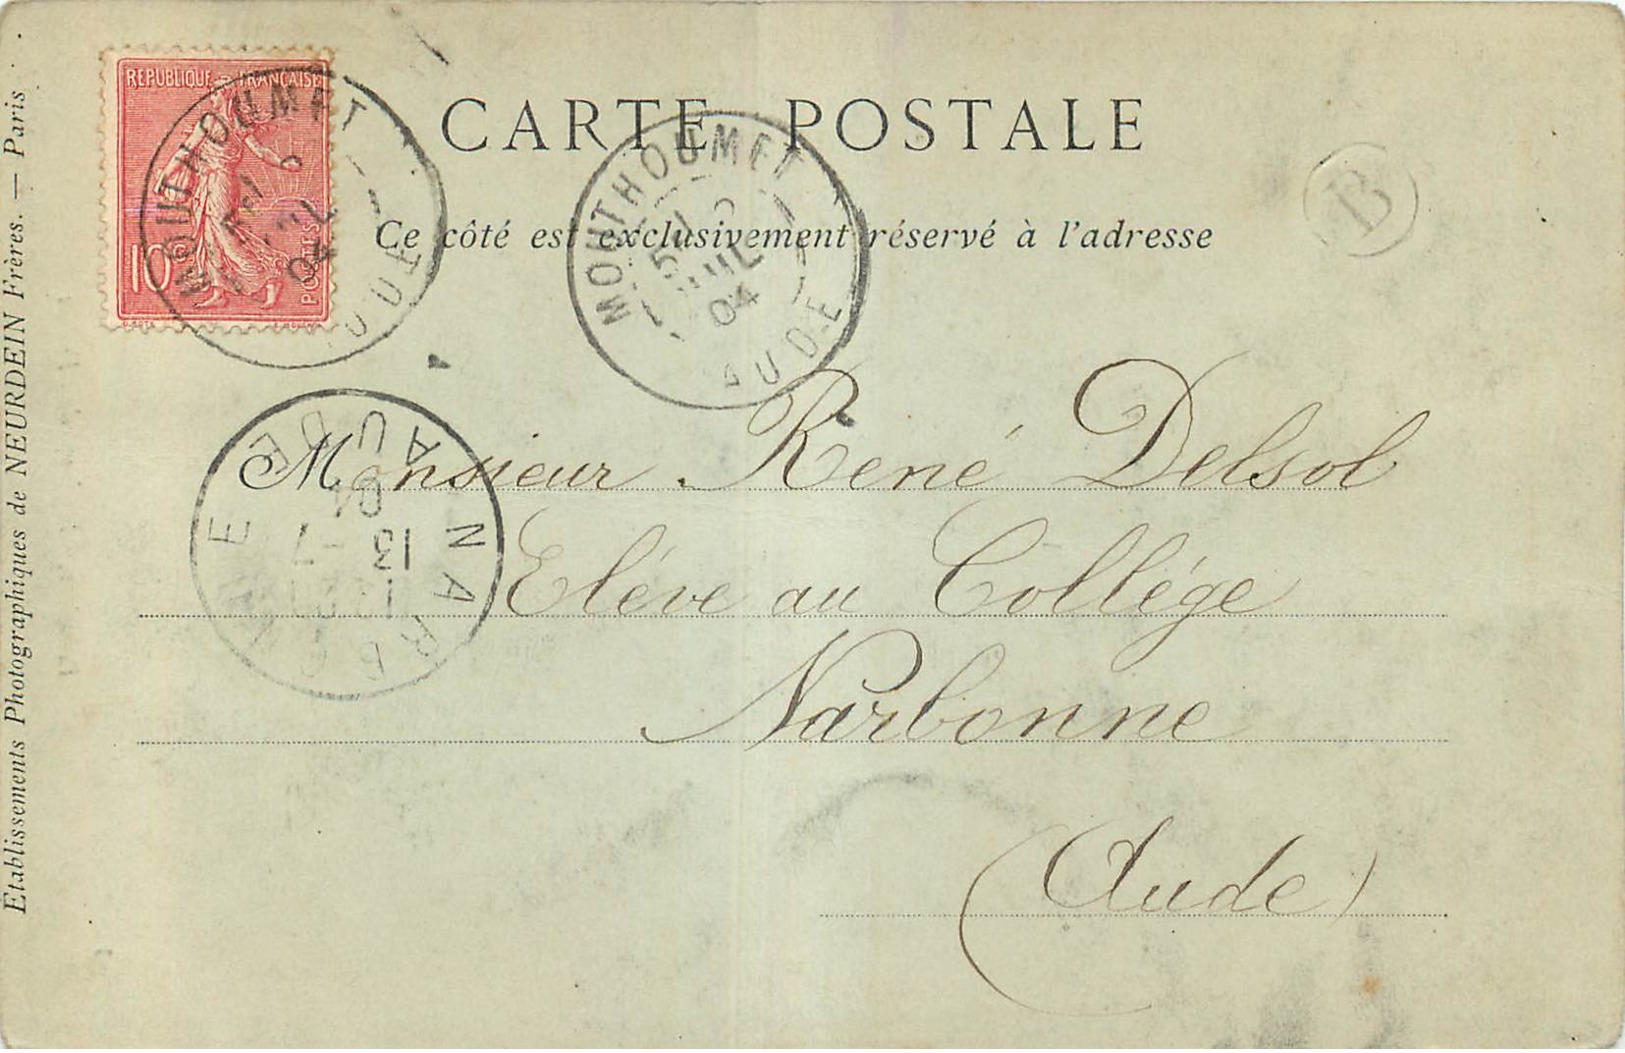 CARTE POSTALE
Ce côté est exclusivement réservé à l'adresse
REPUBLIQUE FRANÇAISE
10c
POSTES
MOUTHOUMET
JUIL
04
AUDE
MOUTHOUMET
JUIL
04
AUDE
B
NARBONNE
13 -7
04
AUDE
Monsieur René Delsol
Elève au Collége
Narbonne
(Aude)
Établissements Photographiques de NEURDEIN Frères. — Paris